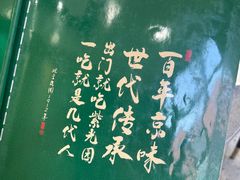 百年京味
世代传承
出门就吃紫光园
一吃就是几代人